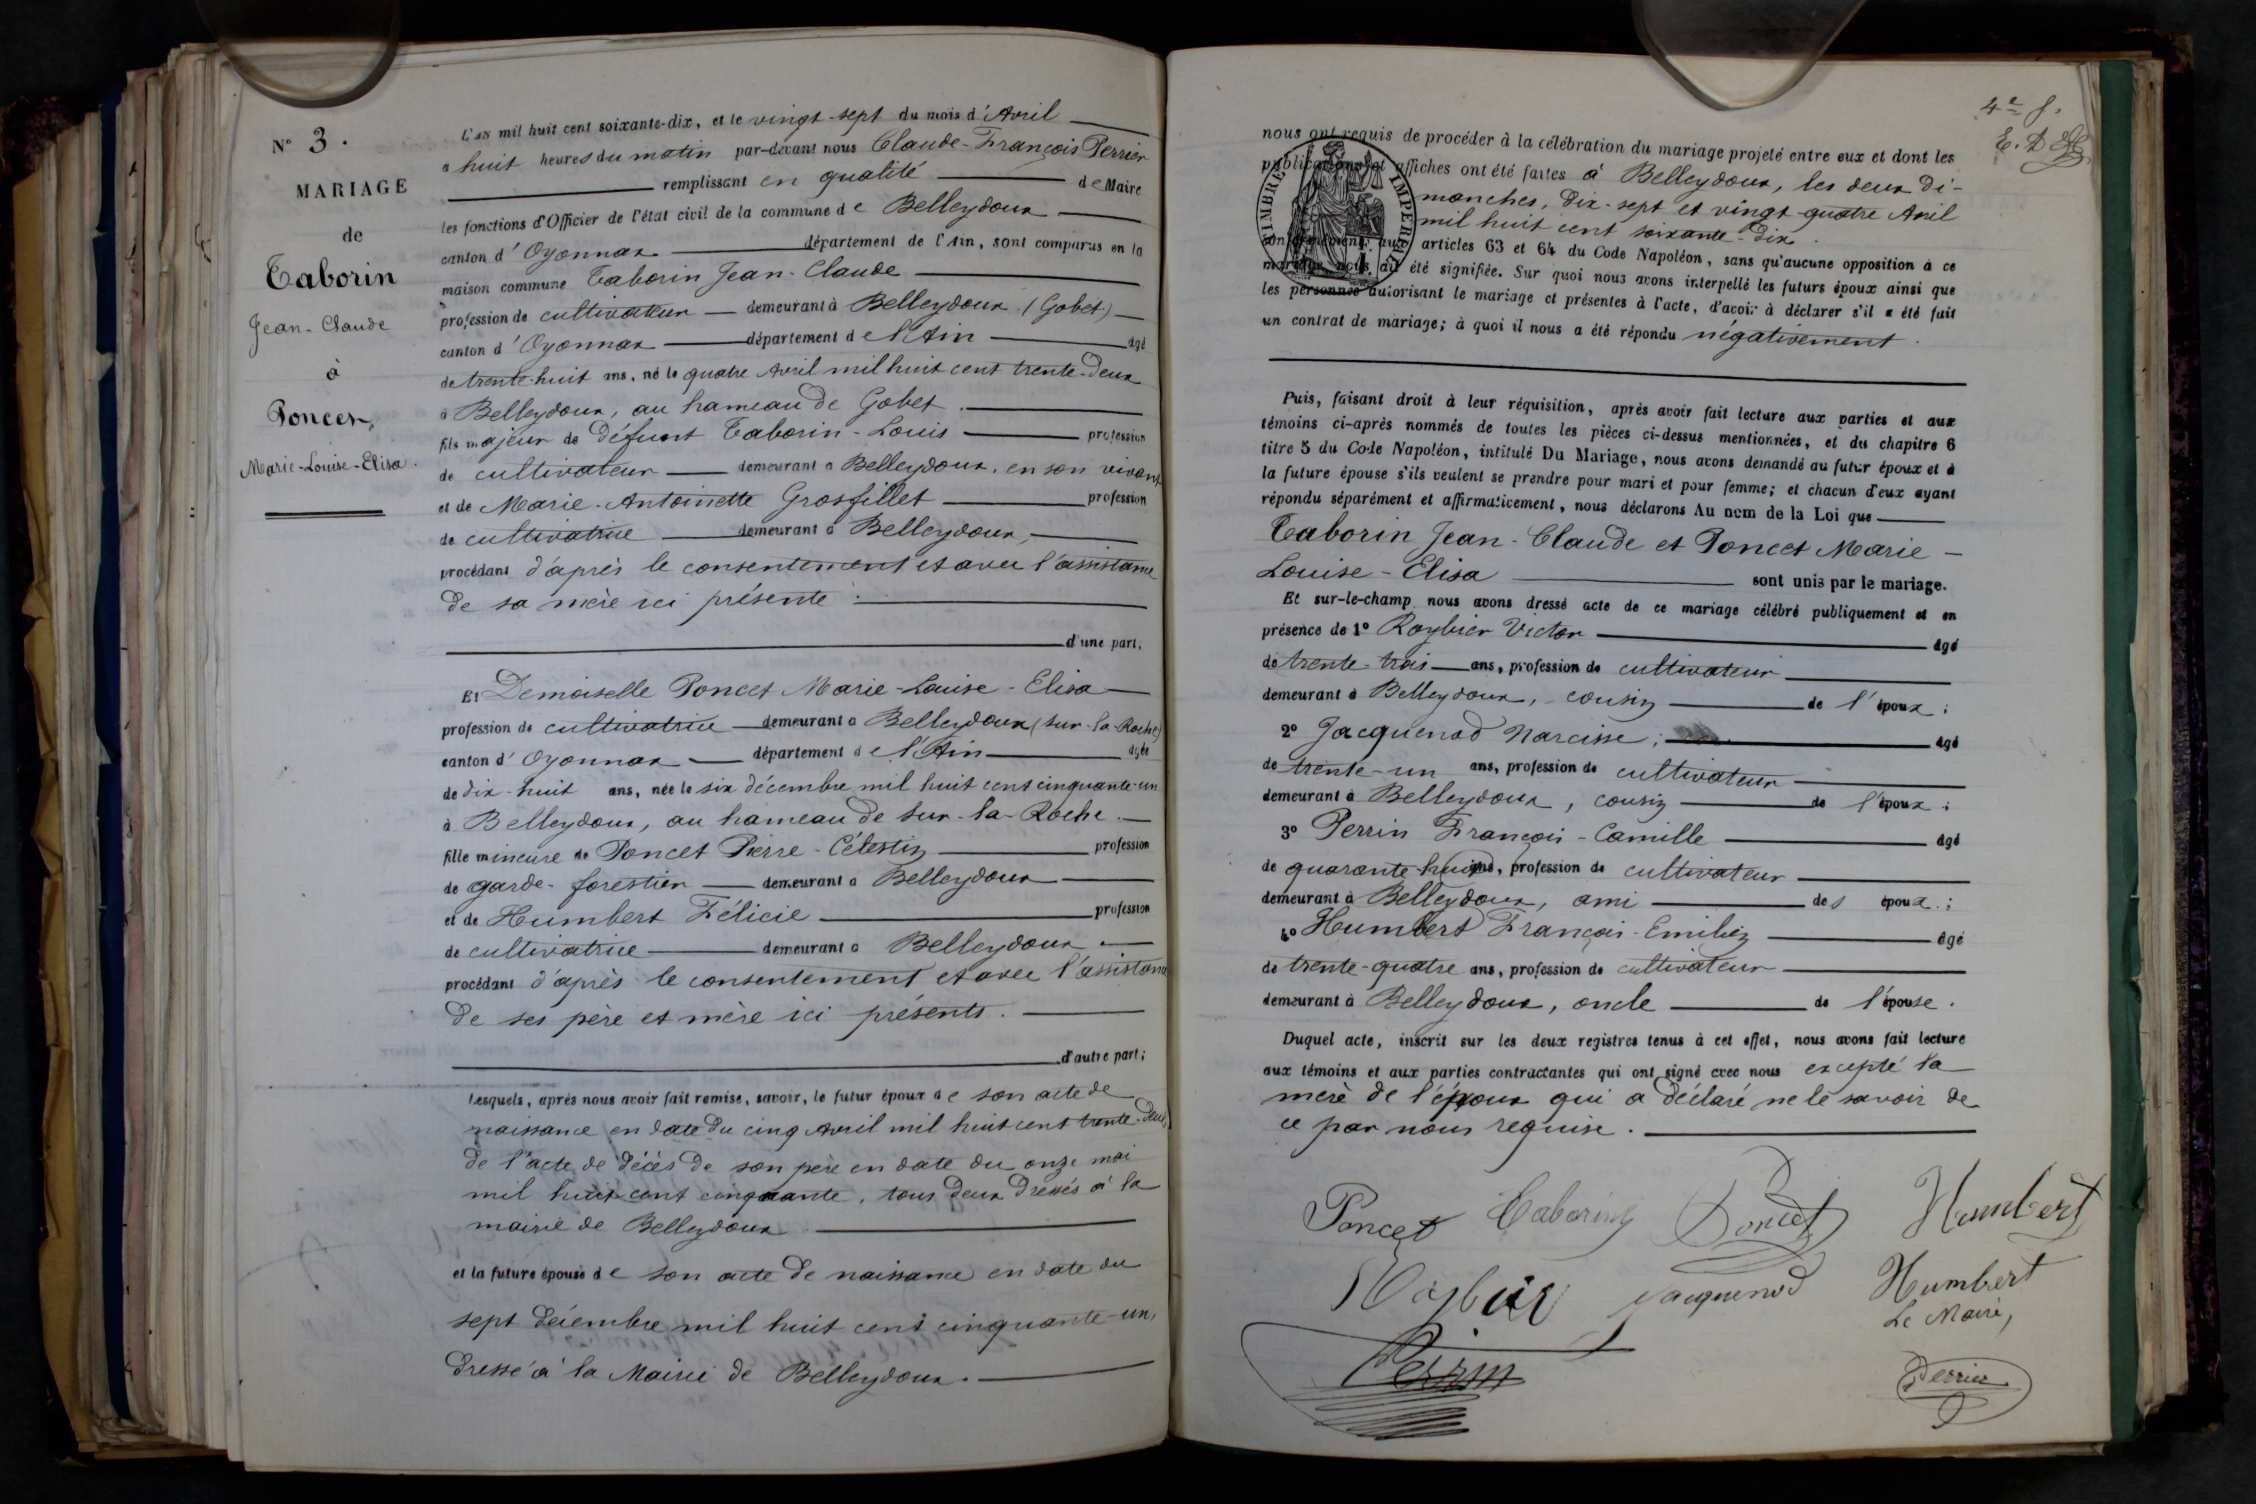 N° 3.
MARIAGE
de
Taborin
Jean-Claude
à
Poncet,
Marie-Louise-Elisa.
L'an mil huit cent soixante-dix, et le vingt-sept du mois d'Avril
à huit heures du matin par-devant nous Claude-François Perrier
remplissant en qualité de Maire
les fonctions d'Officier de l'état civil de la commune de Belleydoux
canton d'Oyonnax département de l'Ain, sont comparus en la
maison commune Taborin Jean-Claude
profession de cultivateur demeurant à Belleydoux (Gobet)
canton d'Oyonnax département de l'Ain âgé
de trente-huit ans, né le quatre Avril mil huit cent trente-deux
à Belleydoux, au hameau de Gobet.
fils majeur de défunt Taborin-Louis profession
de cultivateur demeurant à Belleydoux, en son vivant
et de Marie-Antoinette Grosfillet profession
de cultivatrice demeurant à Belleydoux,
procédant d'après le consentement et avec l'assistance
de sa mère ici présente.
d'une part.
Et Demoiselle Poncet Marie-Louise-Elisa
profession de cultivatrice demeurant à Belleydoux (Sur-la-Roche)
canton d'Oyonnax département de l'Ain âgée
de dix-huit ans, née le six décembre mil huit cent cinquante-un
à Belleydoux, au hameau de Sur-la-Roche.
fille mineure de Poncet Pierre-Célestin profession
de garde-forestier demeurant à Belleydoux
et de Humbert Félicie profession
de cultivatrice demeurant à Belleydoux.
procédant d'après le consentement et avec l'assistance
de ses père et mère ici présents.
d'autre part;
Lesquels, après nous avoir fait remise, savoir, le futur époux de son acte de
naissance en date du cinq Avril mil huit cent trente-deux,
de l'acte de décès de son père en date du onze mai
mil huit cent cinquante, tous deux dressés à la
mairie de Belleydoux
et la future épouse de son acte de naissance en date du
sept décembre mil huit cent cinquante-un,
dressé à la Mairie de Belleydoux.
4e f.
nous ont requis de procéder à la célébration du mariage projeté entre eux et dont les
publications et affiches ont été faites à Belleydoux, les deux di-
manches, dix-sept et vingt-quatre Avril
mil huit cent soixante-dix.
TIMBRE IMPERIAL
conformément aux articles 63 et 64 du Code Napoléon, sans qu'aucune opposition à ce
mariage nous ait été signifiée. Sur quoi nous avons interpellé les futurs époux ainsi que
les personnes autorisant le mariage et présentes à l'acte, d'avoir à déclarer s'il a été fait
un contrat de mariage; à quoi il nous a été répondu négativement.
Puis, faisant droit à leur réquisition, après avoir fait lecture aux parties et aux
témoins ci-après nommés de toutes les pièces ci-dessus mentionnées, et du chapitre 6
titre 5 du Code Napoléon, intitulé Du Mariage, nous avons demandé au futur époux et à
la future épouse s'ils veulent se prendre pour mari et pour femme; et chacun d'eux ayant
répondu séparément et affirmativement, nous déclarons Au nom de la Loi que
Taborin Jean-Claude et Poncet Marie-
Louise-Elisa sont unis par le mariage.
Et sur-le-champ nous avons dressé acte de ce mariage célébré publiquement et en
présence de 1° Roybier Victor âgé
de trente-trois ans, profession de cultivateur
demeurant à Belleydoux, cousin de l'époux;
2° Jacquenod Narcisse; âgé
de trente-un ans, profession de cultivateur
demeurant à Belleydoux, cousin de l'époux;
3° Perrin François-Camille âgé
de quarante-huit ans, profession de cultivateur
demeurant à Belleydoux, ami des époux;
4° Humbert François-Emilien âgé
de trente-quatre ans, profession de cultivateur
demeurant à Belleydoux, oncle de l'épouse.
Duquel acte, inscrit sur les deux registres tenus à cet effet, nous avons fait lecture
aux témoins et aux parties contractantes qui ont signé avec nous excepté la
mère de l'époux qui a déclaré ne le savoir de
ce par nous requise.
Poncet Taborin Poncet Humbert
Roybier Jacquenod Humbert
Le Maire,
Perrin Perrier